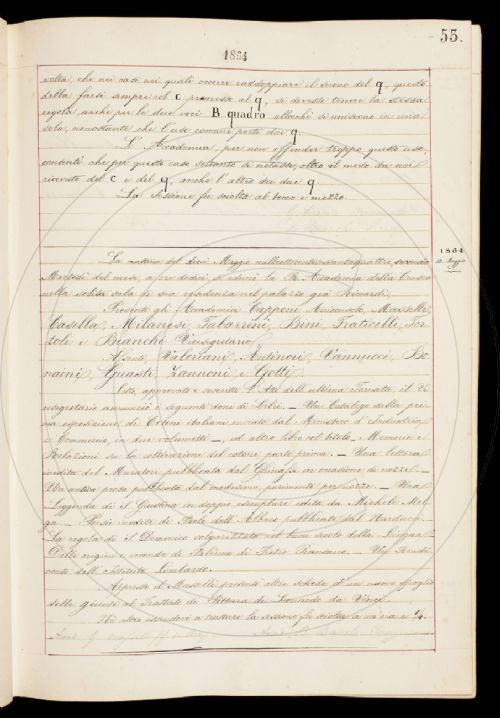 53.
1864
volta, che nei casi nei quali occorre raddoppiare il suono del q, questo
debba farsi sempre col c premesso al q, si dovesse tenere la stessa
regola anche per le due voci B quadro allorchè si unissono in una
sola, nonostante che l'uso comune porti due q.
L'Accademia, per non offender troppo questo uso,
consentì che per questo caso soltanto si notasse, oltre al modo da noi
ricevuto del c e del q, anche l'altro dei due q.
La sessione fu sciolta al tocco e mezzo.
1864
12 Maggio
La mattina del dodici Maggio milleottocentosessantaquattro, secondo
Martedì del mese, a ore dodici, si adunò la R. Accademia della Crusca
nella solita sala di sua residenza nel palazzo già Riccardi.
Presenti gli Accademici Capponi Arciconsolo, Masselli,
Casella, Milanesi, Tabarrini, Bini, Fraticelli,
e Bianchi Vicesegretario.
Assenti, Valeriani, Antinori, Vannucci, Bo
naini, Guasti, Zannoni e Gotti.
Letto, approvato e sottoscritto l'Atto dell'ultima Tornata, il Vi
cesegretario annunciò i seguenti doni di Libri. — Un Catalogo della pri
ma esposizione di Cotoni Italiani inviato dal Ministero d'Industria
e Commercio, in due volumetti — ed altro libro col titolo, Memorie e
Relazioni su la coltivazione del cotone parte prima. — Una lettera
inedita del Muratori pubblicata dal in occasione di nozze. —
Un'antica prosa pubblicata dal medesimo parimente per nozze. — Una
Leggenda di S. Giustina in doppio esemplare edita da Michele Mel
ga — inedite di Paolo dell'Abbaco pubblicate dal
La regola di S. Domenico volgarizzata nel buon secolo della Lingua
Delle origini e vicende di Palermo di Pietro Ransano — Rendi
conti dell'Istituto Lombardo.
Appresso il Masselli presentò altre schede d'un nuovo spoglio
delle giunte al Trattato di Pittura di Leonardo da Vinci.
Nè altro essendovi a trattare la sessione fu sciolta a un'ora e 1/4.